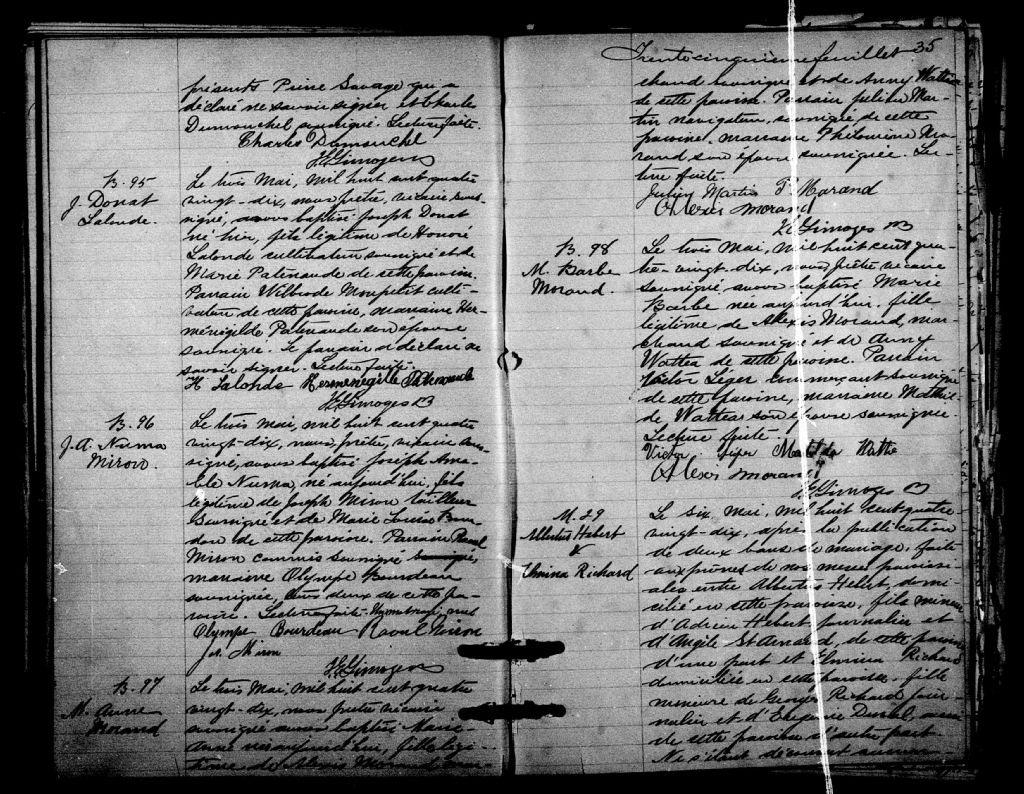 présents Pierre Savage qui a
déclaré ne savoir signer et Charles
Dumouchel soussigné. Lecture faite.
Charles Dumouchel
H Limoges
B. 95
J. Donat
Lalonde.
Le trois Mai, mil huit cent quatre
vingt-dix, nous prêtre, vicaire sous-
signé, avons baptisé Joseph Donat
né hier, fils légitime de Honoré
Lalonde cultivateur soussigné et de
Marie Patenaude de cette paroisse.
Parrain Wilbrode Monpetit culti-
vateur de cette paroisse, marraine Her-
ménégilde Patenaude son épouse
soussignée. Le parrain a déclaré ne
savoir signer. Lecture faite.
H Lalonde Herménégille Patenaude
H Limoges
B. 96
J. A. Numa
Miron.
Le trois Mai, mil huit cent quatre
vingt-dix, nous, prêtre, vicaire sous-
signé, avons baptisé Joseph Ama-
ble Numa, né aujourd'hui, fils
légitime de Joseph Miron tailleur
soussigné et de Marie Louise Bour-
deau de cette paroisse. Parrain Raoul
Miron commis soussigné
marraine Olympe Bourdeau
soussignée, tous deux de cette pa-
roisse. Lecture faite.
Olympe Bourdeau Raoul Miron
Jos. Miron
H Limoges
B. 97
M. Anne
Morand
Le trois Mai, mil huit cent quatre
vingt-dix, nous prêtre vicaire
soussigné avons baptisé Marie
Anne née aujourd'hui, fille légi-
time de Alexis Morand mar-
Trente cinquième feuillet 35
chand soussigné et de Anny Wattea
de cette paroisse. Parrain Julien Mar-
tin navigateur, soussigné de cette
paroisse, marraine Philomène Mo-
rand son épouse soussignée. Lec-
ture faite.
Julien Martin P. Morand
Alexis Morand
H Limoges
B. 98
M. Barbe
Morand.
Le trois Mai, mil huit cent qua-
tre-vingt-dix, nous prêtre vicaire
soussigné avons baptisé Marie
Barbe née aujourd'hui, fille
légitime de Alexis Morand, mar-
chand soussigné et de Anny
Wattea de cette paroisse. Parrain
Victor Léger commerçant soussigné
de cette paroisse, marraine Mathil-
de Wattear son épouse soussignée.
Lecture faite
Victor Mathilda Wathe
Alexis Morand
H Limoges
M. 29
Albertus Hebert
&
Elmina Richard
Le six Mai, mil huit cent quatre
vingt-dix, après la publication
de deux bans de mariage, faite
aux prônes de nos messes paroissi-
ales entre Albertus Hébert domi-
cilié en cette paroisse, fils mineur
d'Adrien Hébert journalier et
d'Angèle St Amand, de cette paroisse
d'une part et Elmina Richard
domiciliée en cette paroisse, fille
mineure de Georges Richard jour-
nalier et d'Euphémie Duval, aussi
de cette paroisse d'autre part.
Ne s'étant découvert aucun